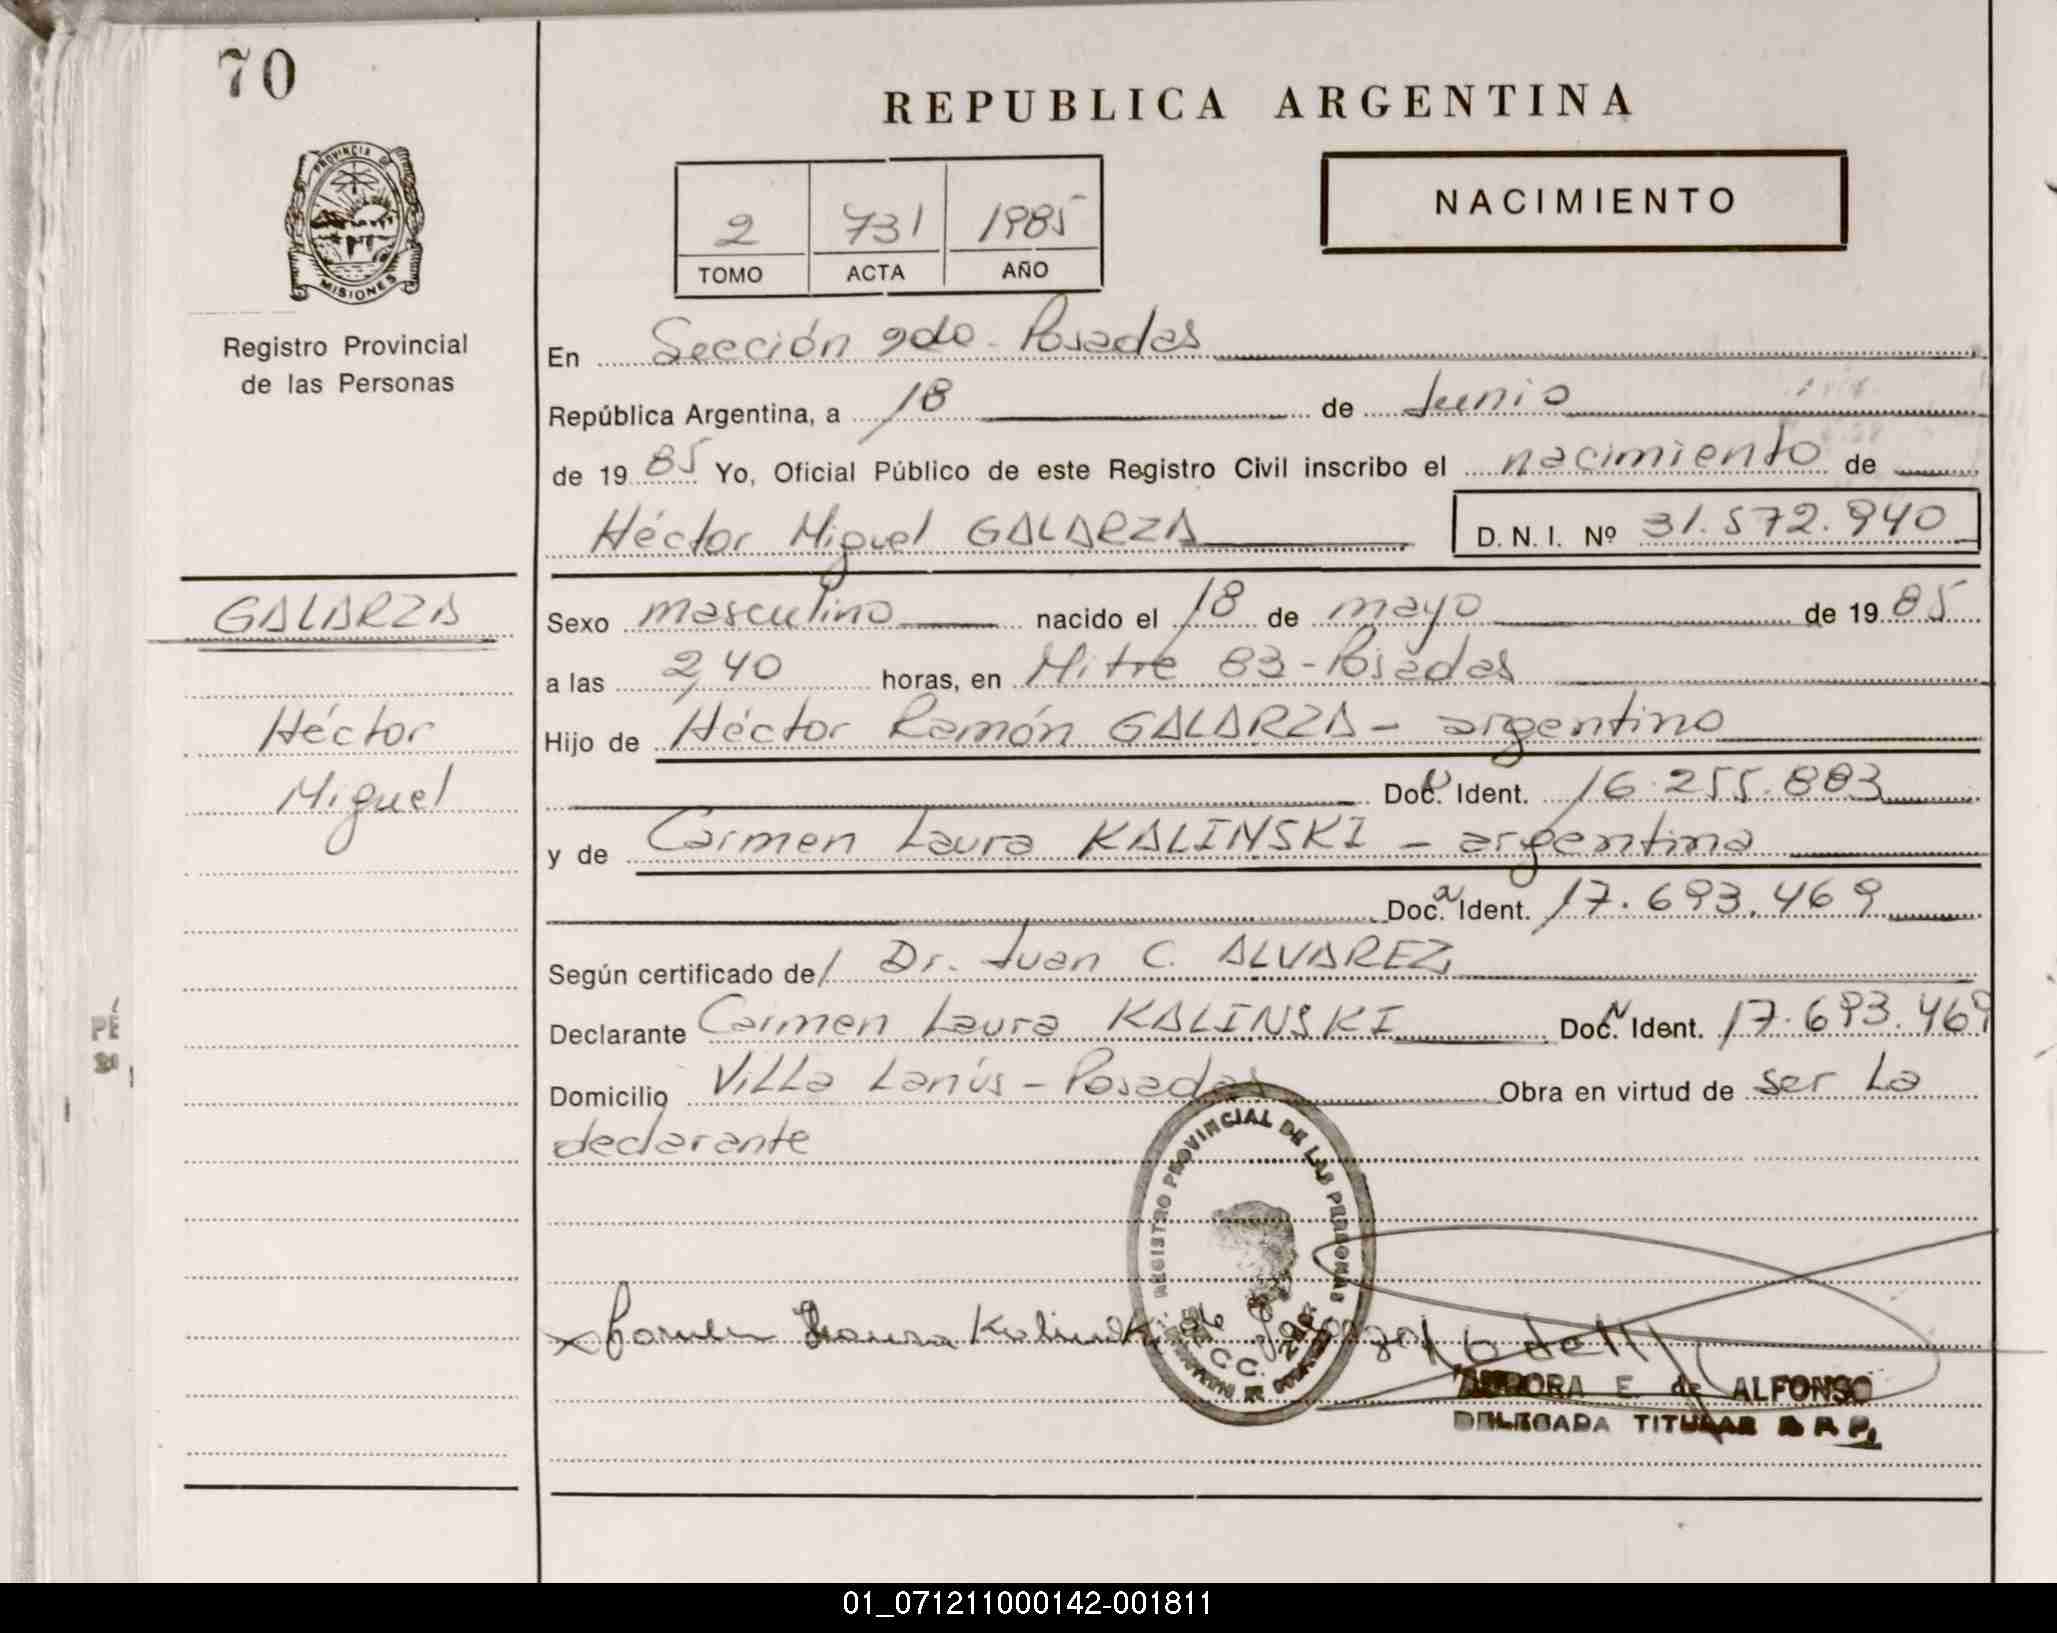 70
REPUBLICA ARGENTINA
NACIMIENTO
2 731 1985
TOMO ACTA AÑO
PROVINCIA DE
MISIONES
Registro Provincial
de las Personas
En Sección 2do - Posadas
República Argentina, a 18 de Junio
de 19 85 Yo, Oficial Público de este Registro Civil inscribo el nacimiento de
Héctor Miguel GALARZA D. N. I. Nº 31.572.940
GALARZA
Héctor
Miguel
Sexo masculino nacido el 18 de mayo de 19 85
a las 2,40 horas, en Mitre 83 - Posadas
Hijo de Héctor Ramón GALARZA - argentino
Doc. Ident. 16.255.883
y de Carmen Laura KALINSKI - argentina
Doc. Ident. 17.693.469
Según certificado de/ Dr. Juan C. ALVAREZ
Declarante Carmen Laura KALINSKI Doc. Ident. 17.693.469
Domicilio Villa Lanús - Posadas Obra en virtud de ser La
declarante
REGISTRO PROVINCIAL DE LAS PERSONAS
Carmen Laura Kalinski
AURORA E. de ALFONSO
DELEGADA TITULAR R. P. P.
01_071211000142-001811